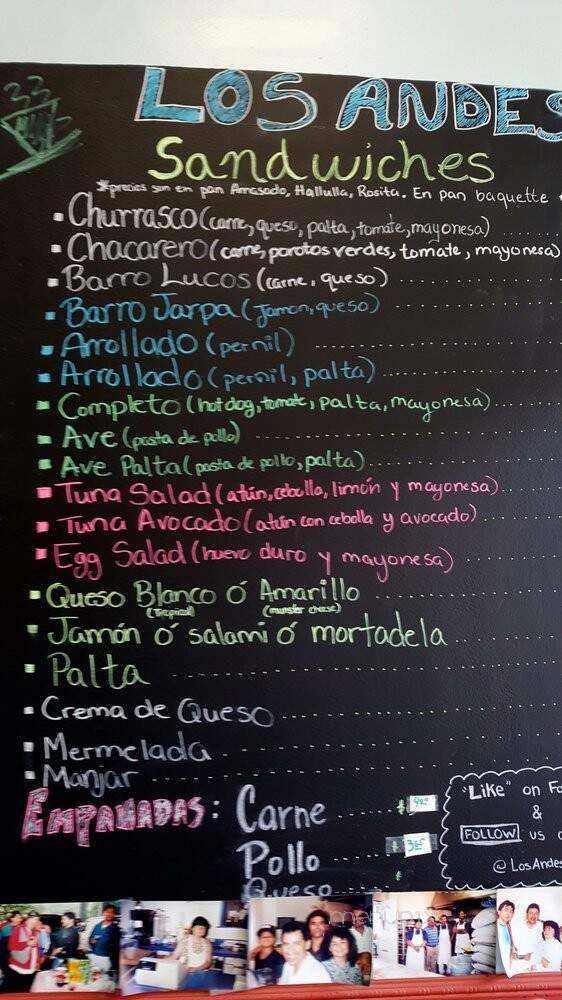 LOS ANDES
Sandwiches
*precios son en pan Amasado, Hallulla, Rosita. En pan baquette
Churrasco (carne, queso, palta, tomate, mayonesa)
Chacarero (carne, porotos verdes, tomate, mayonesa)
Barro Lucos (carne, queso)
Barro Jarpa (Jamon, queso)
Arrollado (pernil)
Arrollado (pernil, palta)
Completo (hot dog, tomate, palta, mayonesa)
Ave (pasta de pollo)
Ave Palta (pasta de pollo, palta)
Tuna Salad (atún, cebolla, limón y mayonesa)
Tuna Avocado (atún con cebolla y avocado)
Egg Salad (huevo duro y mayonesa)
Queso Blanco ó Amarillo
(Tropical) (munster cheese)
Jamón ó salami ó mortadela
Palta
Crema de Queso
Mermelada
Manjar
EMPANADAS: Carne $
Pollo 3.65
Queso $
"Like" on Fa
&
FOLLOW us o
@LosAndes